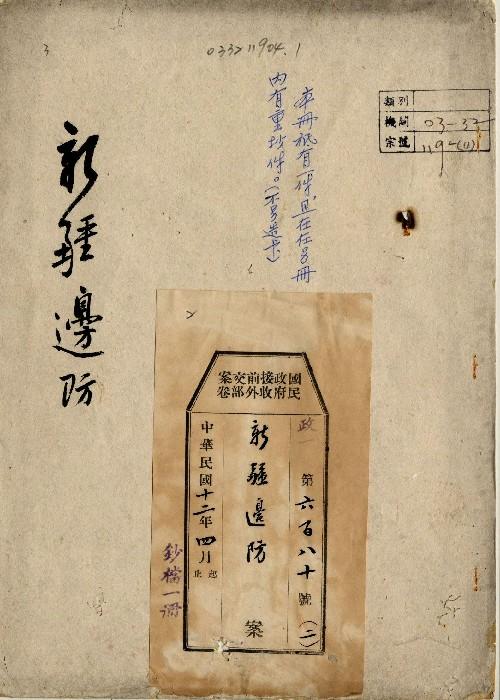 3
033211904.1
類別
機關 03-32
宗號 119-(1)
本冊祇有一件且在在
冊
內有重抄件。(不另造卡)
新疆邊防
國民政府接收前外交部案卷
政一
第六百八十號(二)
新疆邊防 案
中華民國十二年四月 起 止
鈔檔一冊